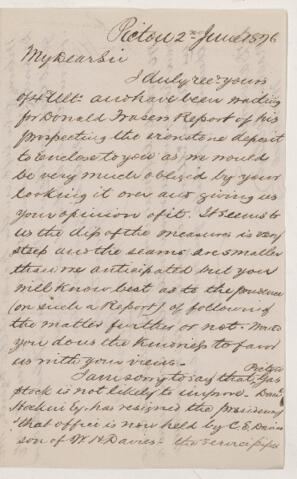 Pictou 2nd June 1876
My Dear Sir
I duly recd yours
of 4 Ult. and have been waiting
for Donald Frasers Report of his
prospecting the ironstone deposit
to enclose to you as we would
be very much obliged by your
looking it over and giving us
your opinion of it. It seems to
us the dip of the measures is very
steep and the seams are smaller
than we anticipated but you
will know best as to the prudence
(on such a Report) of following
the matter further or not. Would
you do us the kindness to favor
us with your views.
I am sorry to say that Pictou Gas
stock is not likely to improve.
Hockin Esq. has resigned the presidency
that office is now held by C. E. Davies
son of W. H. Davies - the